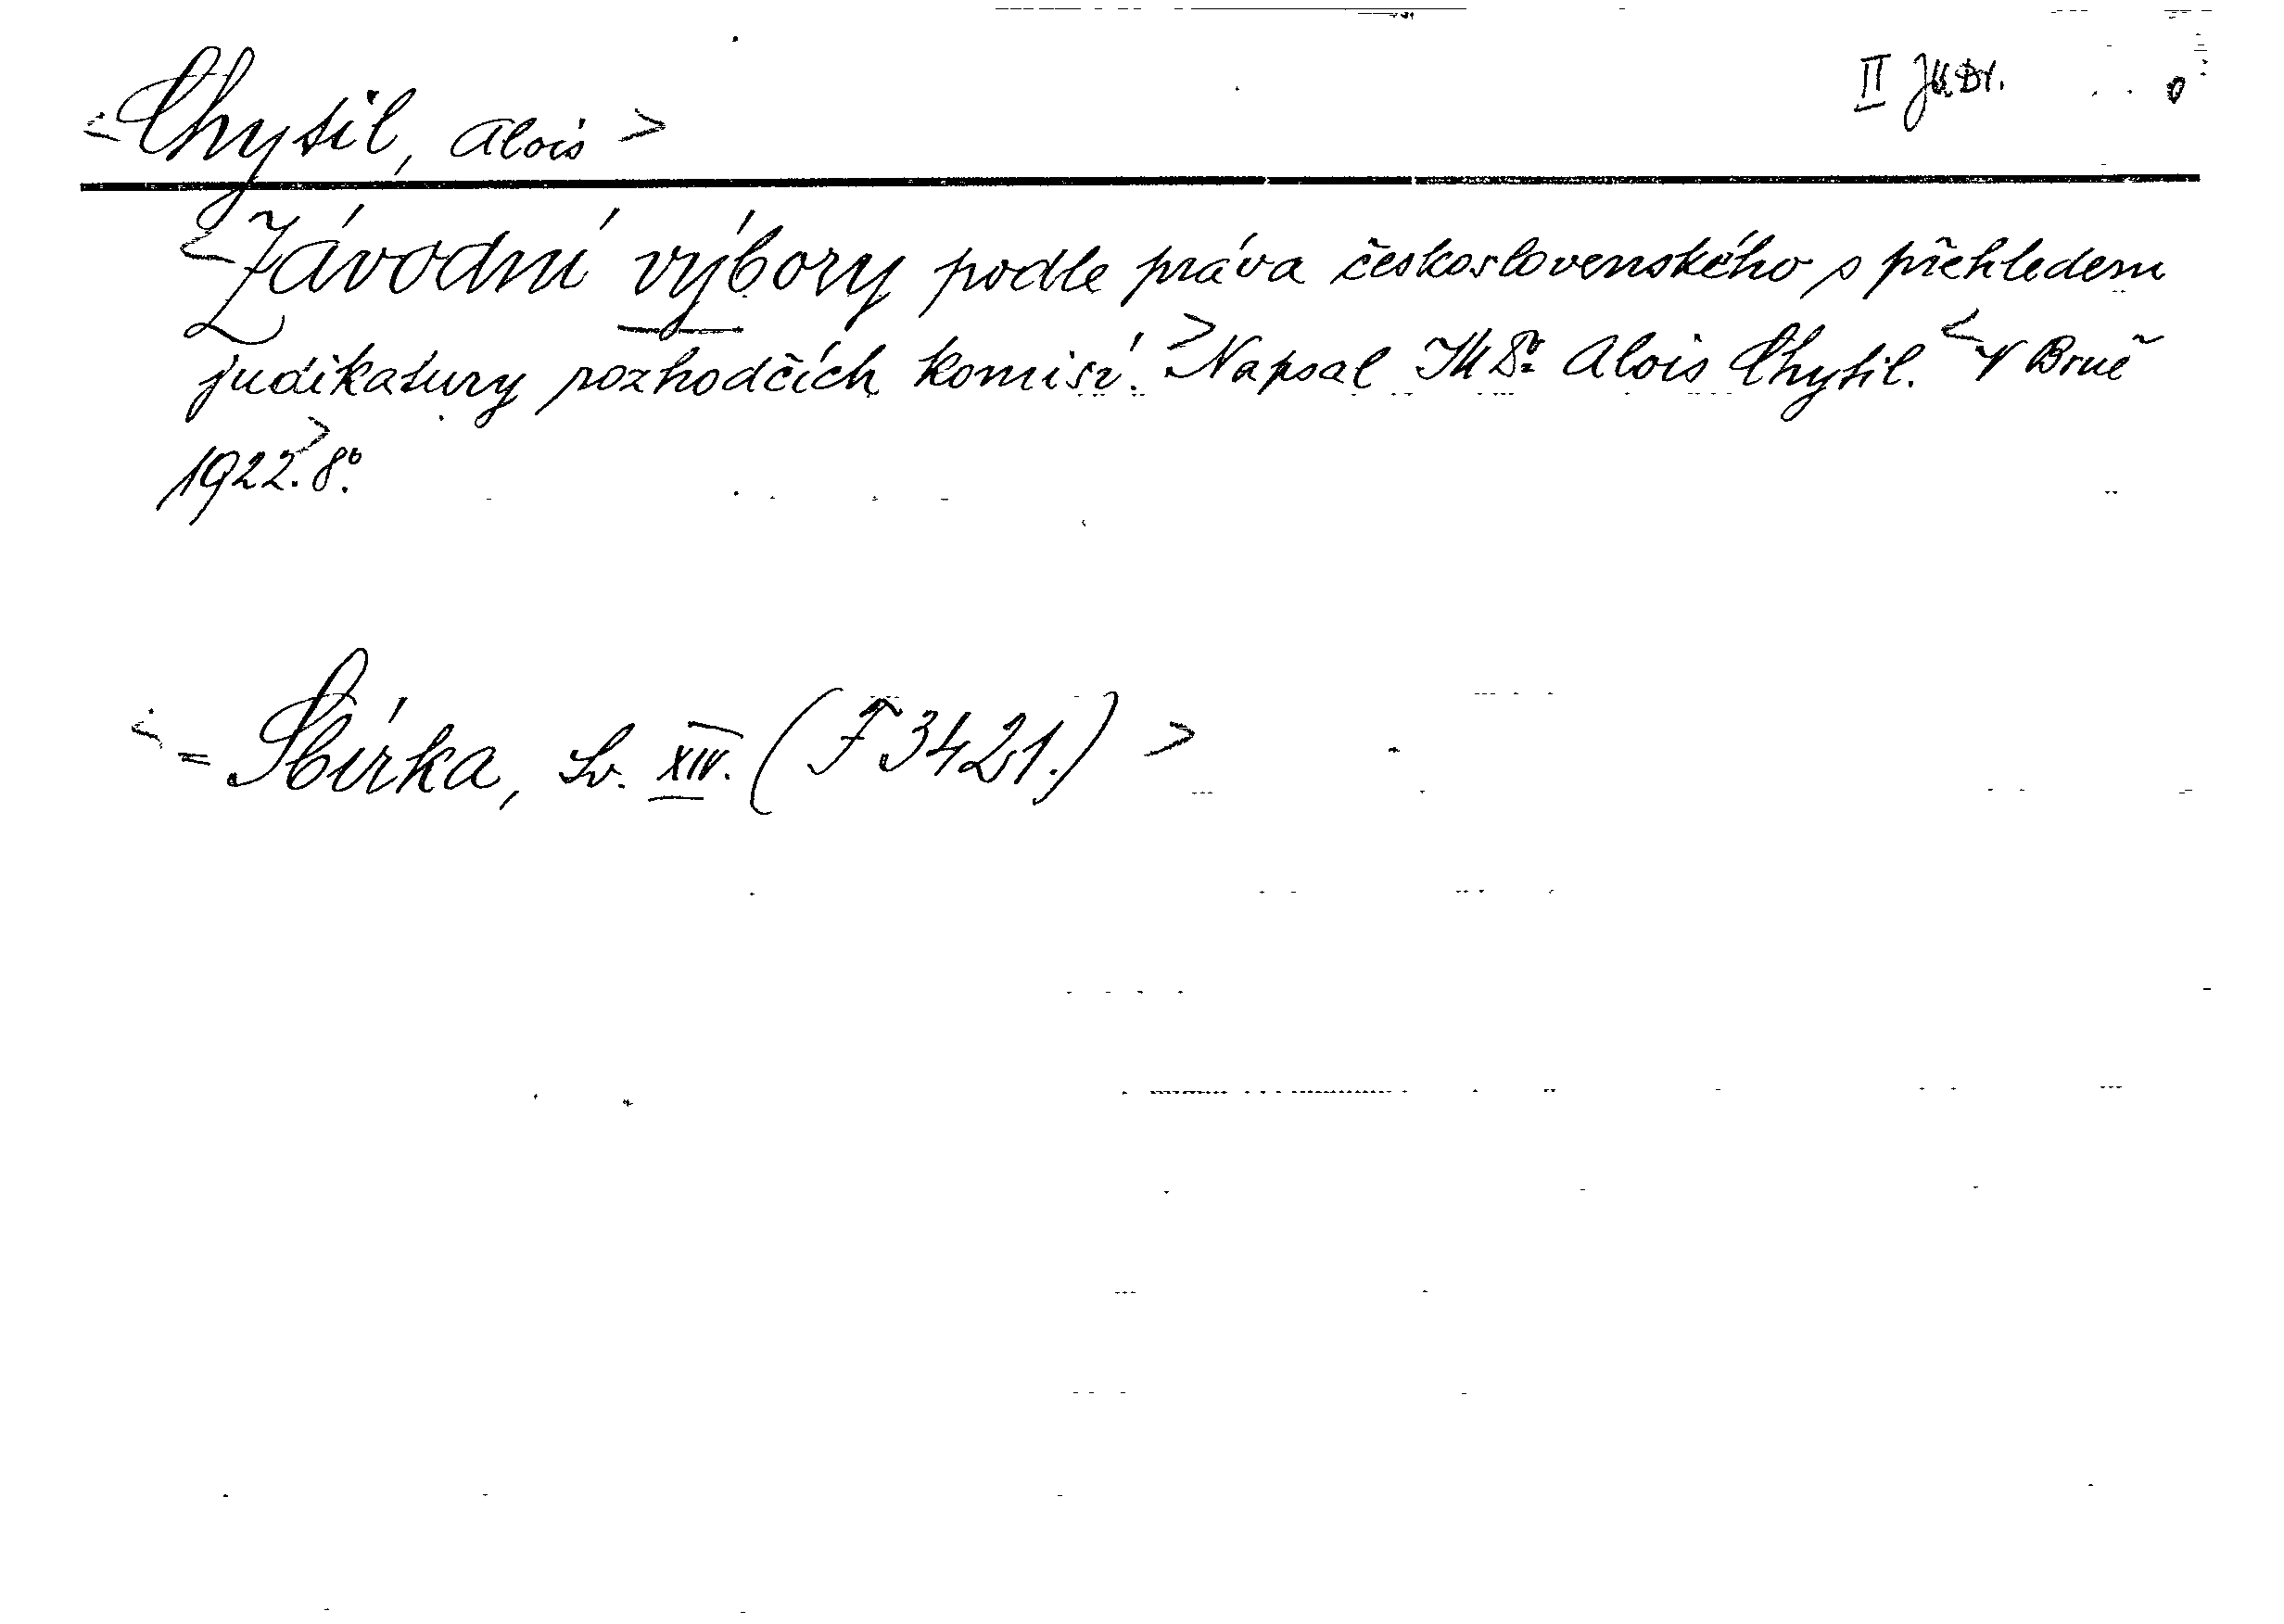 II JUDr.
<Chytil, Alois>
<Závodní výbory podle práva československého s přehledem
judikatury rozhodčích komisí.> Napsal JUDr. Alois Chytil. <V Brně
1922.> 8°.
<= Sbírka, Sv. XIV. (F 3421.)>